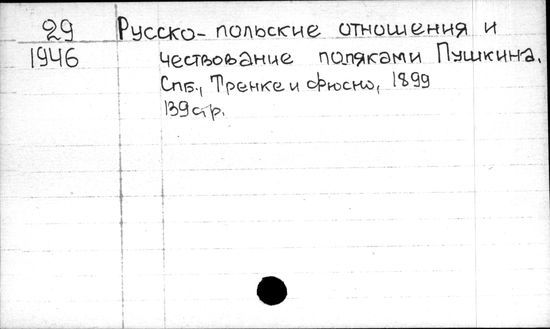 29 Русско-польские отношения и
1946 чествование поляками Пушкина.
Спб., Тренке и Фюсно, 1899
139 стр.